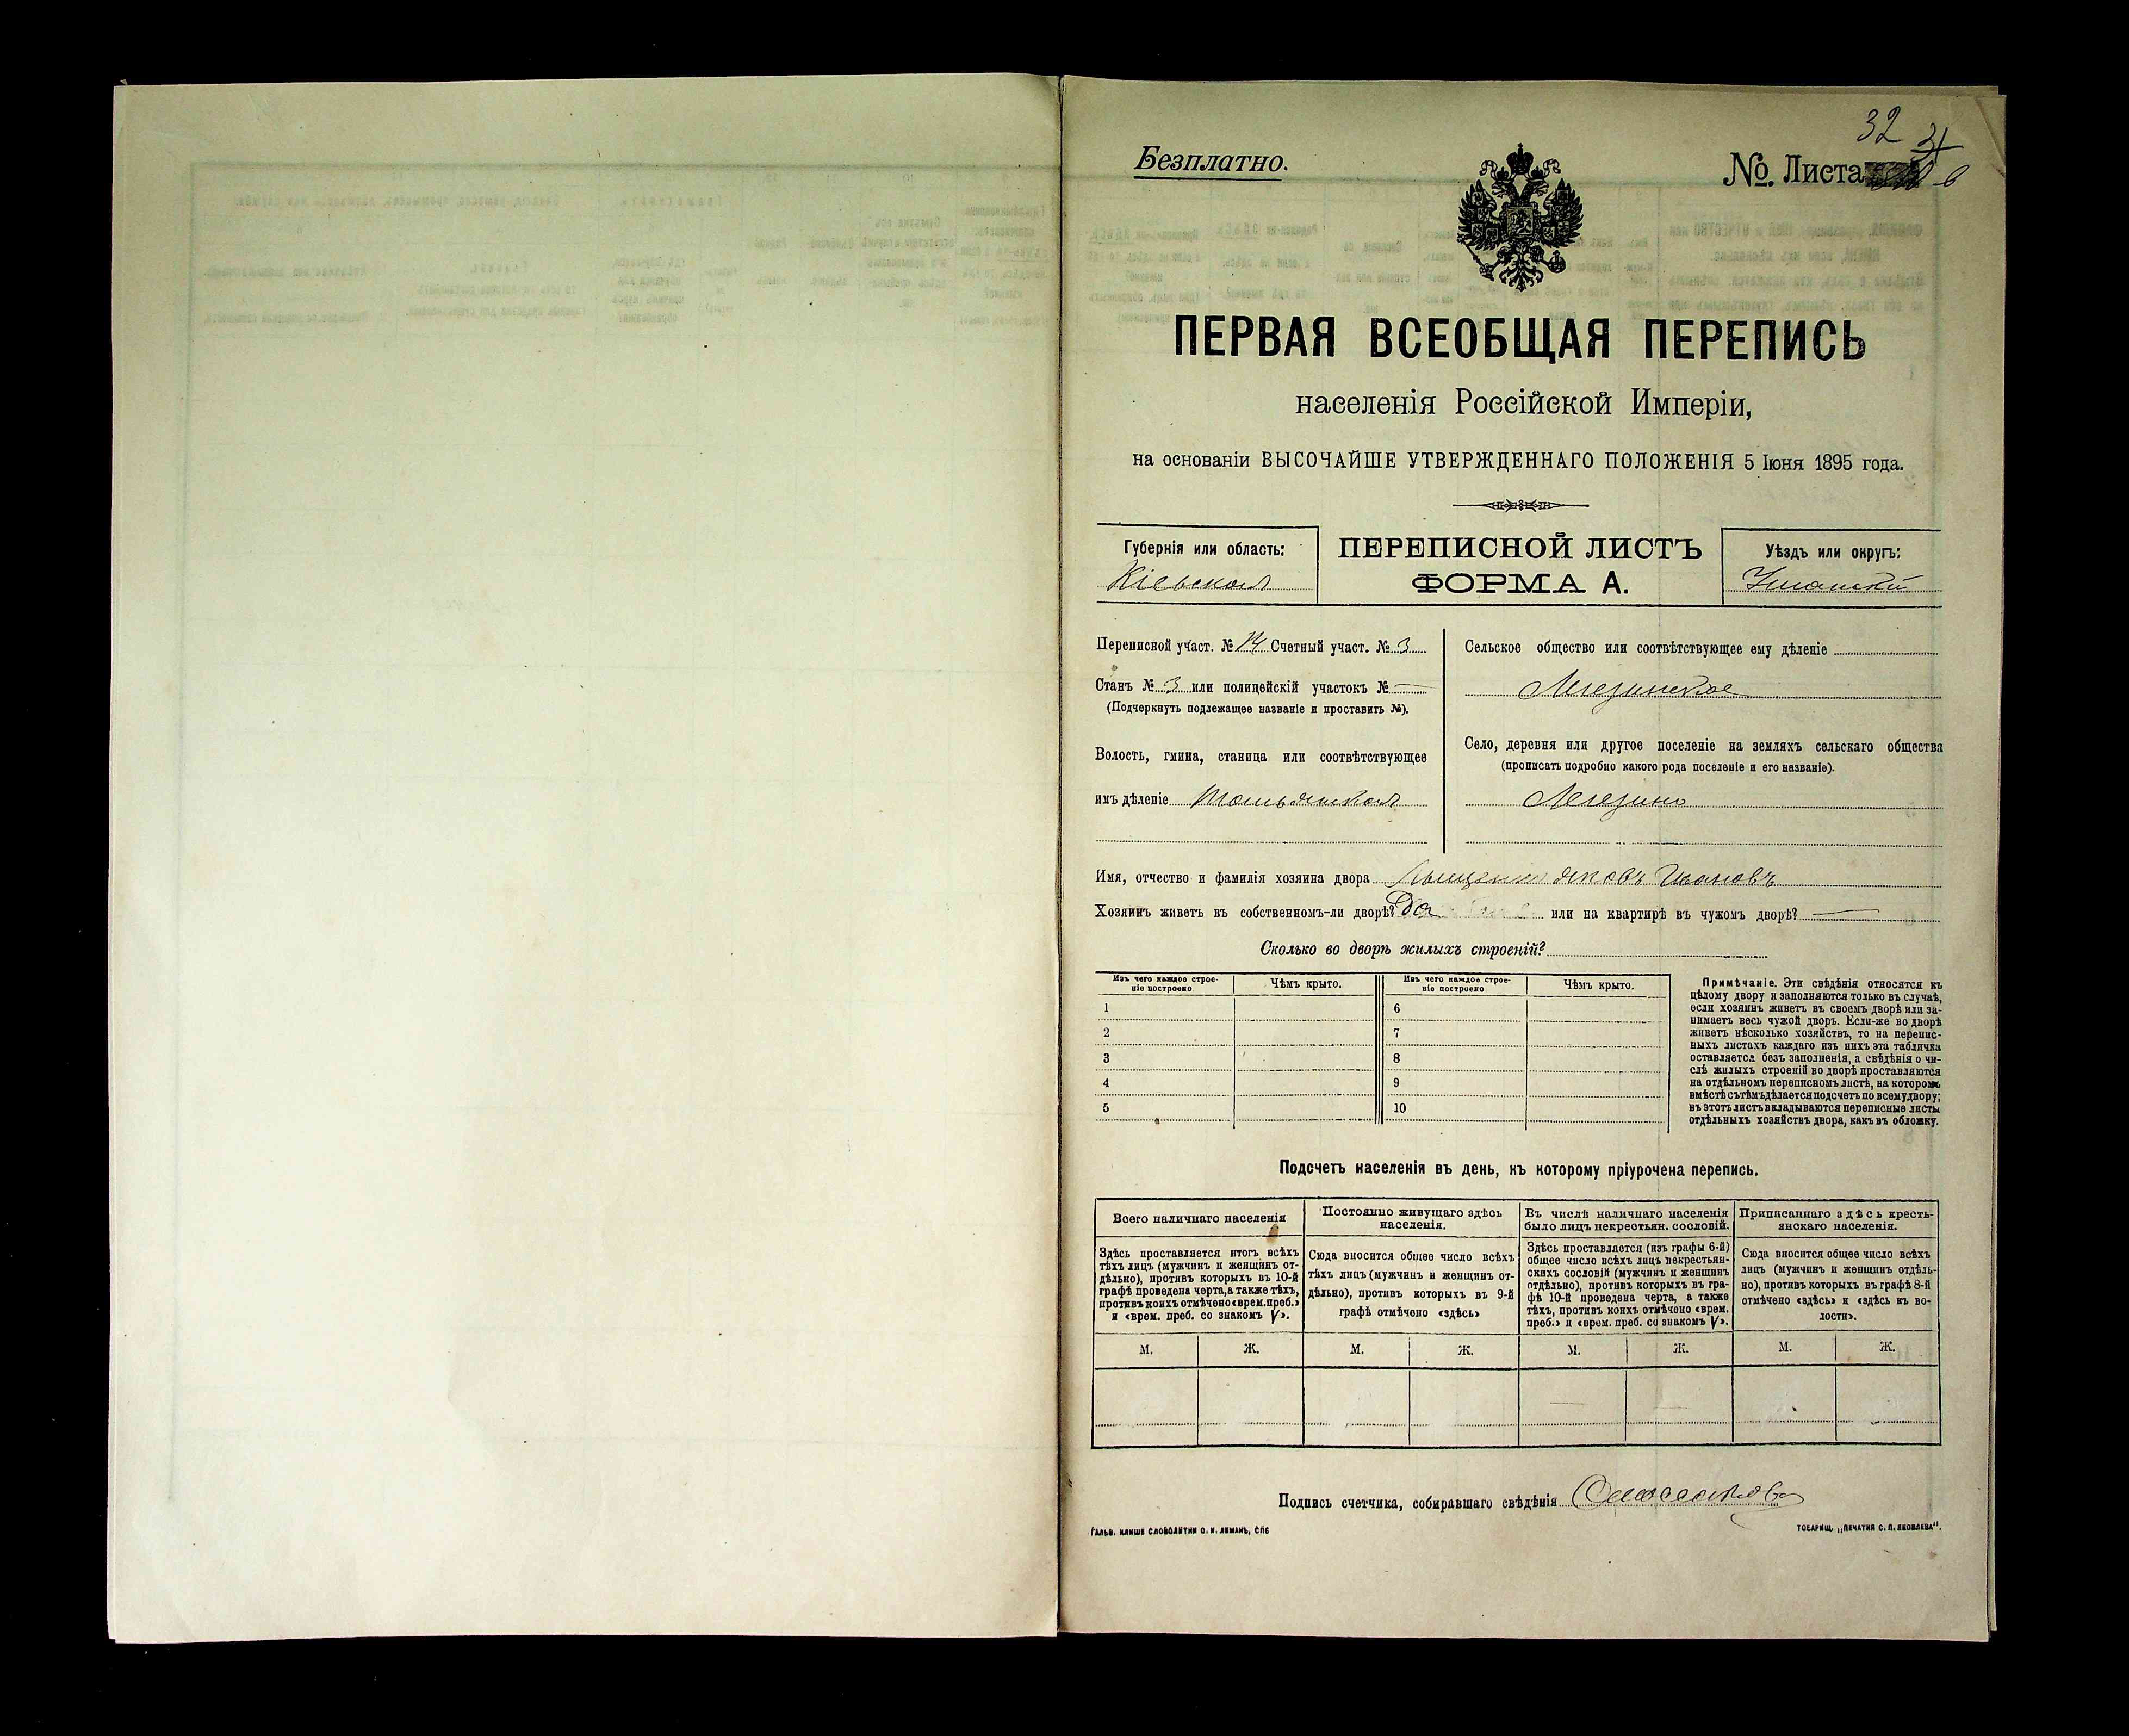 32
Безплатно.
№. Листа
ПЕРВАЯ ВСЕОБЩАЯ ПЕРЕПИСЬ
населенія Россійской Имперіи,
на основаніи ВЫСОЧАЙШЕ УТВЕРЖДЕННАГО ПОЛОЖЕНІЯ 5 Іюня 1895 года.
Губернія или область:
Кіевская
ПЕРЕПИСНОЙ ЛИСТЪ
ФОРМА А.
Уѣздъ или округъ:
Уманскій
Переписной участ. № 14 Счетный участ. № 3
Станъ № 3 или полицейскій участокъ № —
(Подчеркнуть подлежащее названіе и проставить №).
Волость, гмина, станица или соотвѣтствующее
имъ дѣленіе Тальянская
Сельское общество или соотвѣтствующее ему дѣленіе
Легезинское
Село, деревня или другое поселеніе на земляхъ сельскаго общества
(прописать подробно какого рода поселеніе и его названіе).
Легезино
Имя, отчество и фамилія хозяина двора Яковъ Ивановъ
Хозяинъ живетъ въ собственномъ-ли дворѣ? Да или на квартирѣ въ чужомъ дворѣ? —
Сколько во дворѣ жилыхъ строеній?
Изъ чего каждое строе-
ніе построено
Чѣмъ крыто.
Изъ чего каждое строе-
ніе построено
Чѣмъ крыто.
1 6
2 7
3 8
4 9
5 10
Примѣчаніе. Эти свѣдѣнія относятся къ
цѣлому двору и заполняются только въ случаѣ,
если хозяинъ живетъ въ своемъ дворѣ или за-
нимаетъ весь чужой дворъ. Если-же во дворѣ
живетъ нѣсколько хозяйствъ, то на перепис-
ныхъ листахъ каждаго изъ нихъ эта табличка
оставляется безъ заполненія, а свѣдѣнія о чи-
слѣ жилыхъ строеній во дворѣ проставляются
на отдѣльномъ переписномъ листѣ, на которомъ
вмѣстѣ съ тѣмъ дѣлается подсчетъ по всему двору;
въ этотъ листъ вкладываются переписные листы
отдѣльныхъ хозяйствъ двора, какъ въ обложку.
Подсчетъ населенія въ день, къ которому пріурочена перепись.
Всего наличнаго населенія
Здѣсь проставляется итогъ всѣхъ
тѣхъ лицъ (мужчинъ и женщинъ от-
дѣльно), противъ которыхъ въ 10-й
графѣ проведена черта, а также тѣхъ,
противъ коихъ отмѣчено «врем. преб.»
и «врем. преб. со знакомъ V».
Постоянно живущаго здѣсь
населенія.
Сюда вносится общее число всѣхъ
тѣхъ лицъ (мужчинъ и женщинъ от-
дѣльно), противъ которыхъ въ 9-й
графѣ отмѣчено «здѣсь»
Въ числѣ наличнаго населенія
было лицъ некрестьян. сословій.
Здѣсь проставляется (изъ графы 6-й)
общее число всѣхъ лицъ некрестьян-
скихъ сословій (мужчинъ и женщинъ
отдѣльно), противъ которыхъ въ гра-
фѣ 10-й проведена черта, а также
тѣхъ, противъ коихъ отмѣчено «врем.
преб.» и «врем. преб. со знакомъ V».
Приписаннаго здѣсь кресть-
янскаго населенія.
Сюда вносится общее число всѣхъ
лицъ (мужчинъ и женщинъ отдѣль-
но), противъ которыхъ въ графѣ 8-й
отмѣчено «здѣсь» и «здѣсь къ во-
лости».
М. Ж. М. Ж. М. Ж. М. Ж.
Подпись счетчика, собиравшаго свѣдѣнія
ГАЛЬВ. КЛИШЕ СЛОВОЛИТНИ О. И. ЛЕМАНЪ, СПБ
ТОВАРИЩ. „ПЕЧАТНЯ С. П. ЯКОВЛЕВА“.